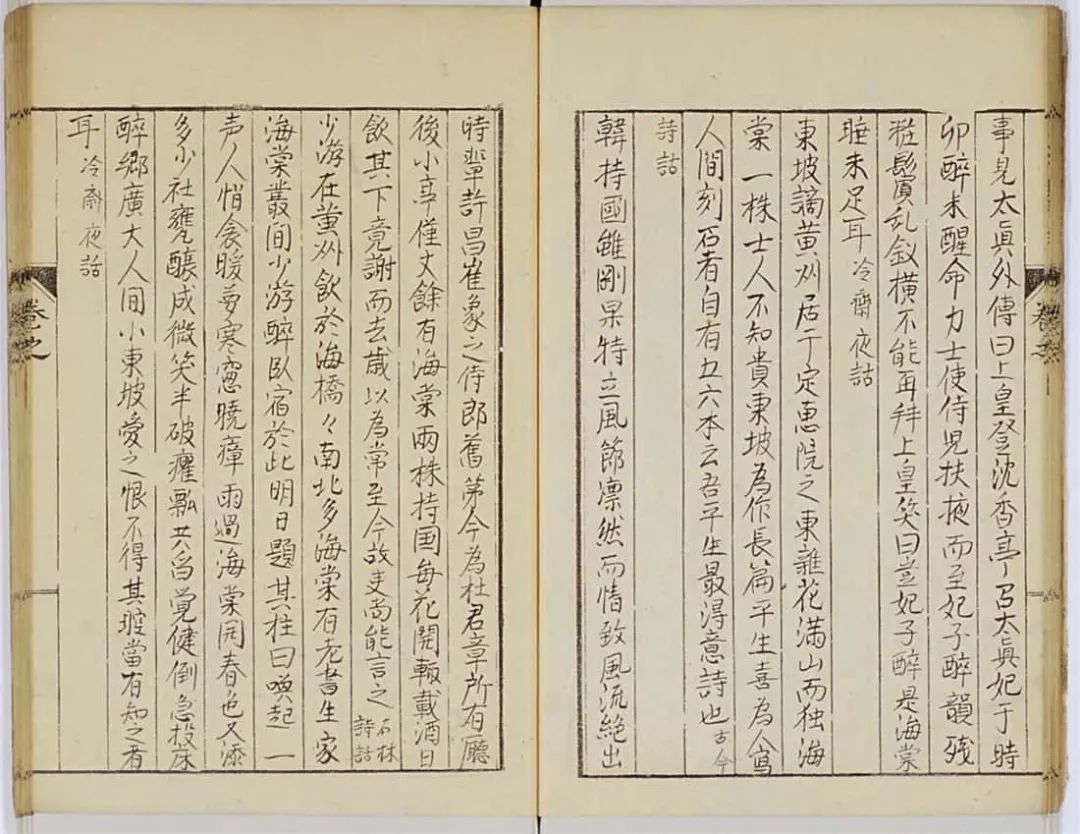 事見太眞外傳曰上皇登沈香亭召太眞妃于時
卯醉未醒命力士使侍児扶掖而至妃子醉韻残
粧鬢乱釵横不能再拜上皇笑曰豈妃子醉是海棠
睡未足耳 冷齋夜話
東坡謫黄州居于定恵院之東雜花満山而独海
棠一株士人不知貴東坡為作長篇平生喜為人寫
人間刻石者自有五六本云吾平生最得意詩也 古今
詩話
韓持國雖剛果特立風節凛然而情致風流絶出
時輩許昌崔象之侍郎舊第今為杜君章所有廳
後小亭僅丈餘有海棠兩株持国毎花開輙載酒日
飲其下竟謝而去歳以為常至今故吏尚能言之 石林詩話
少游在黄州飲於海橋々南北多海棠有老書生家
海棠叢間少游醉臥宿於此明日題其柱曰喚起一
声人悄衾暖夢寒窓曉瘴雨過海棠開春色又添
多少社甕釀成微笑半破癭瓢共舀覚健倒急投床
醉郷廣大人間小東坡愛之恨不得其腔當有知之者
耳 冷斎夜話
巻之